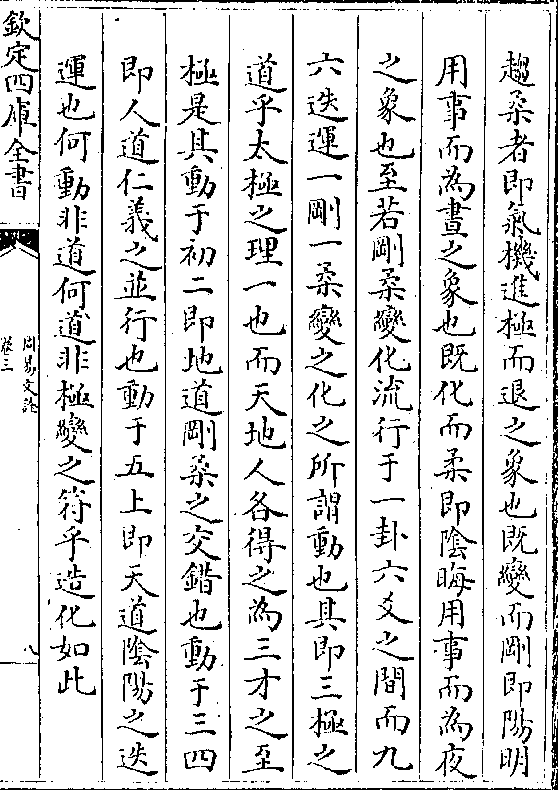 趨柔者即氣機進極而退之象也既變而剛即陽明
用事而為晝之象也既化而柔即陰晦用事而為夜
之象也至若剛柔變化流行于一卦六爻之間而九
六迭運一剛一柔變之化之所謂動也其即三極之
道乎太極之理一也而天地人各得之為三才之至
極是其動于初二即地道剛柔之交錯也動于三四
即人道仁義之並行也動于五上即天道陰陽之迭
運也何動非道何道非極變之符乎造化如此
欽定四庫全書
周易文詮
卷三
八